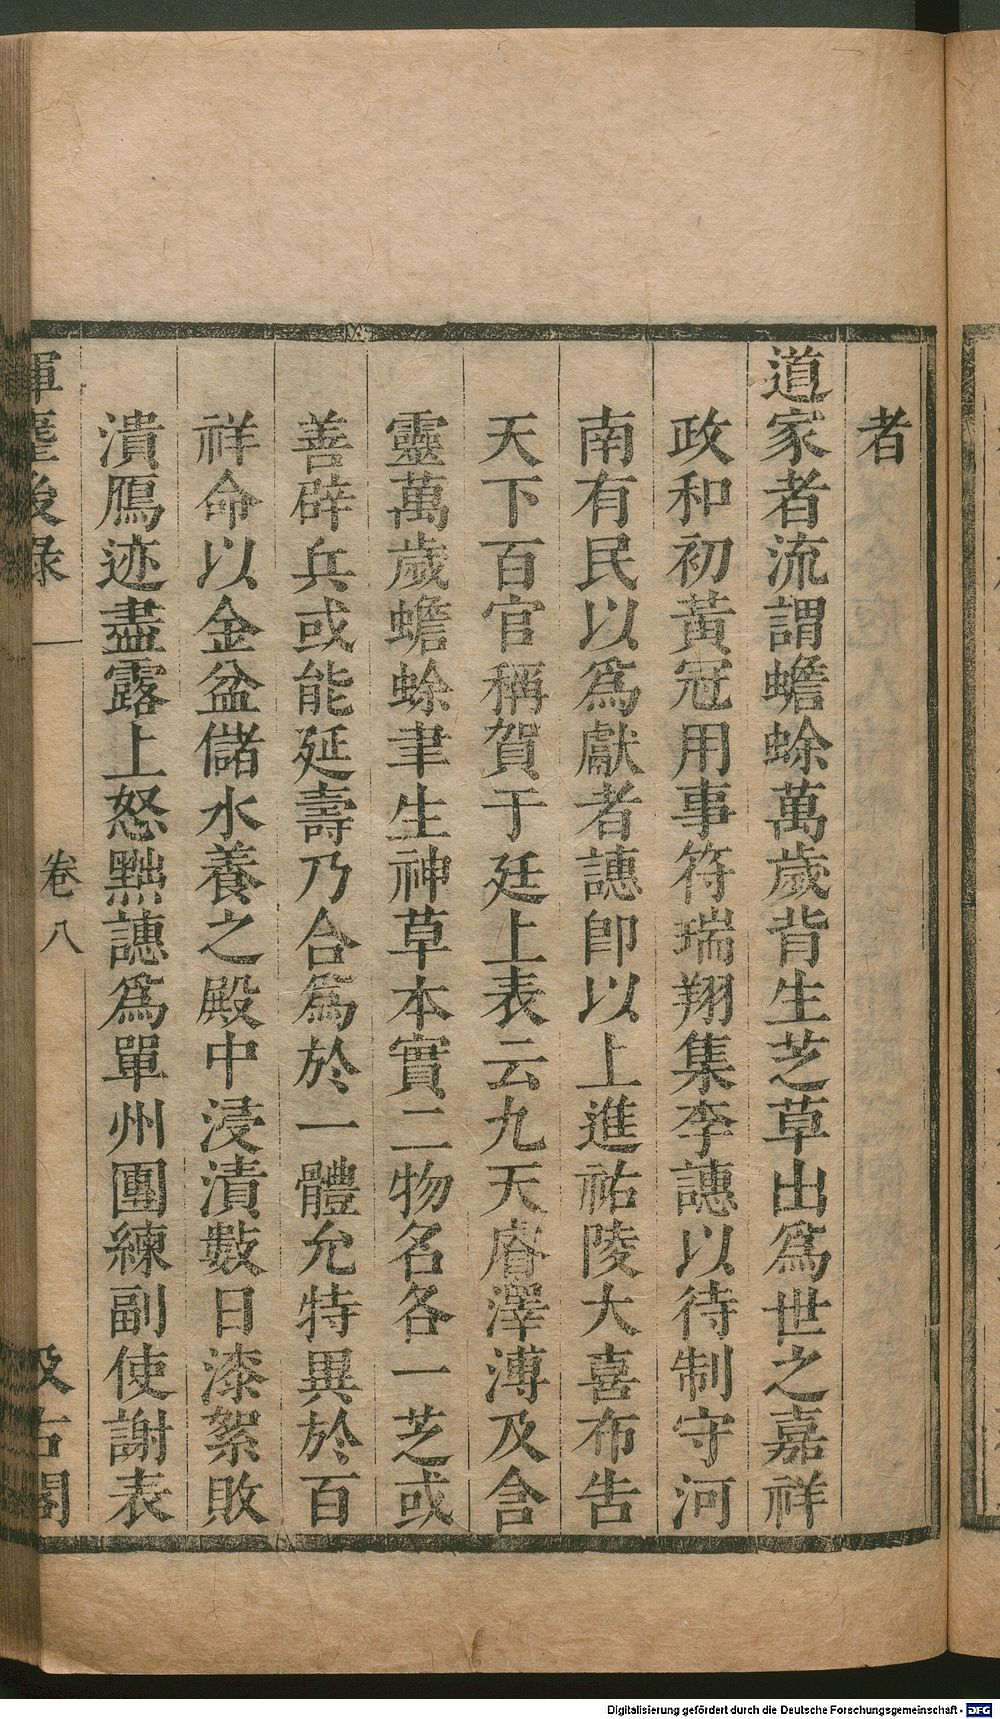 者
道家者流謂蟾蜍萬歲背生芝草出爲世之嘉祥
政和初黃冠用事符瑞翔集李譓以待制守河
南有民以爲獻者譓卽以上進祐陵大喜布告
天下百官稱賀于廷上表云九天睿澤溥及含
靈萬歲蟾蜍聿生神草本實二物名各一芝或
善辟兵或能延壽乃合爲於一體允特異於百
祥命以金盆儲水養之殿中浸漬數日漆絮敗
潰鴈迹盡露上怒黜譓爲單州團練副使謝表
揮麈後錄
卷八
汲古閣
Digitalisierung gefördert durch die Deutsche Forschungsgemeinschaft - DFG